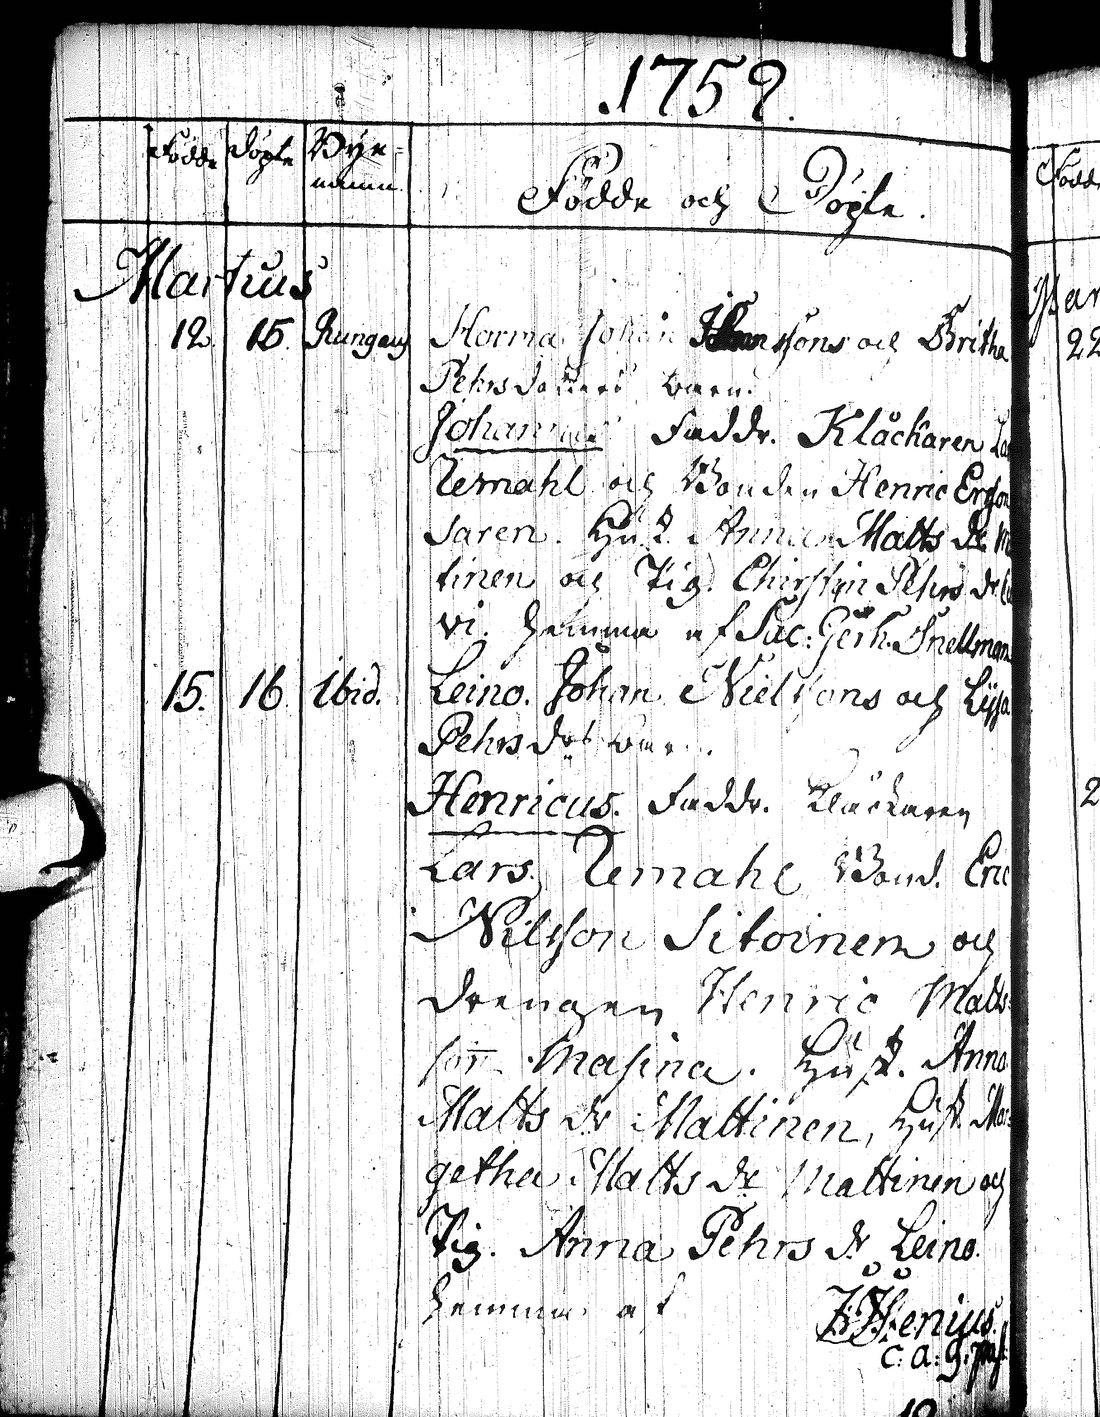 1752.
Födde Döpte Bye-
namn.
Födde och Döpte.
Martius
12. 15. Rungaus Horma Johan Hanssons och Britha
Pehrs dotters barn.
Johannes Faddr. Klåckaren
Uemahl och Bonden Henric Ersson
Saren. Hust. Anna Matts dr
tinen och Pig. Chirstin Pehrs dr
vi. hemma af Sac: Gerh. Snellman
15. 16 Ibid. Leino. Johan Nielssons och Lijsa
Pehrs dotr barn.
Henricus. Faddr. Klackaren
Lars Uemahl Bond. Eric
Nilsson Sitoinen och
drengen Henric Matts-
son Masina. Hust. Anna
Matts dr Mattinen, Hust. Mar-
getha Matts dr Mattinen och
Pig. Anna Pehrs dr Leino.
hemma af
c: a: g:
Födde
22
2